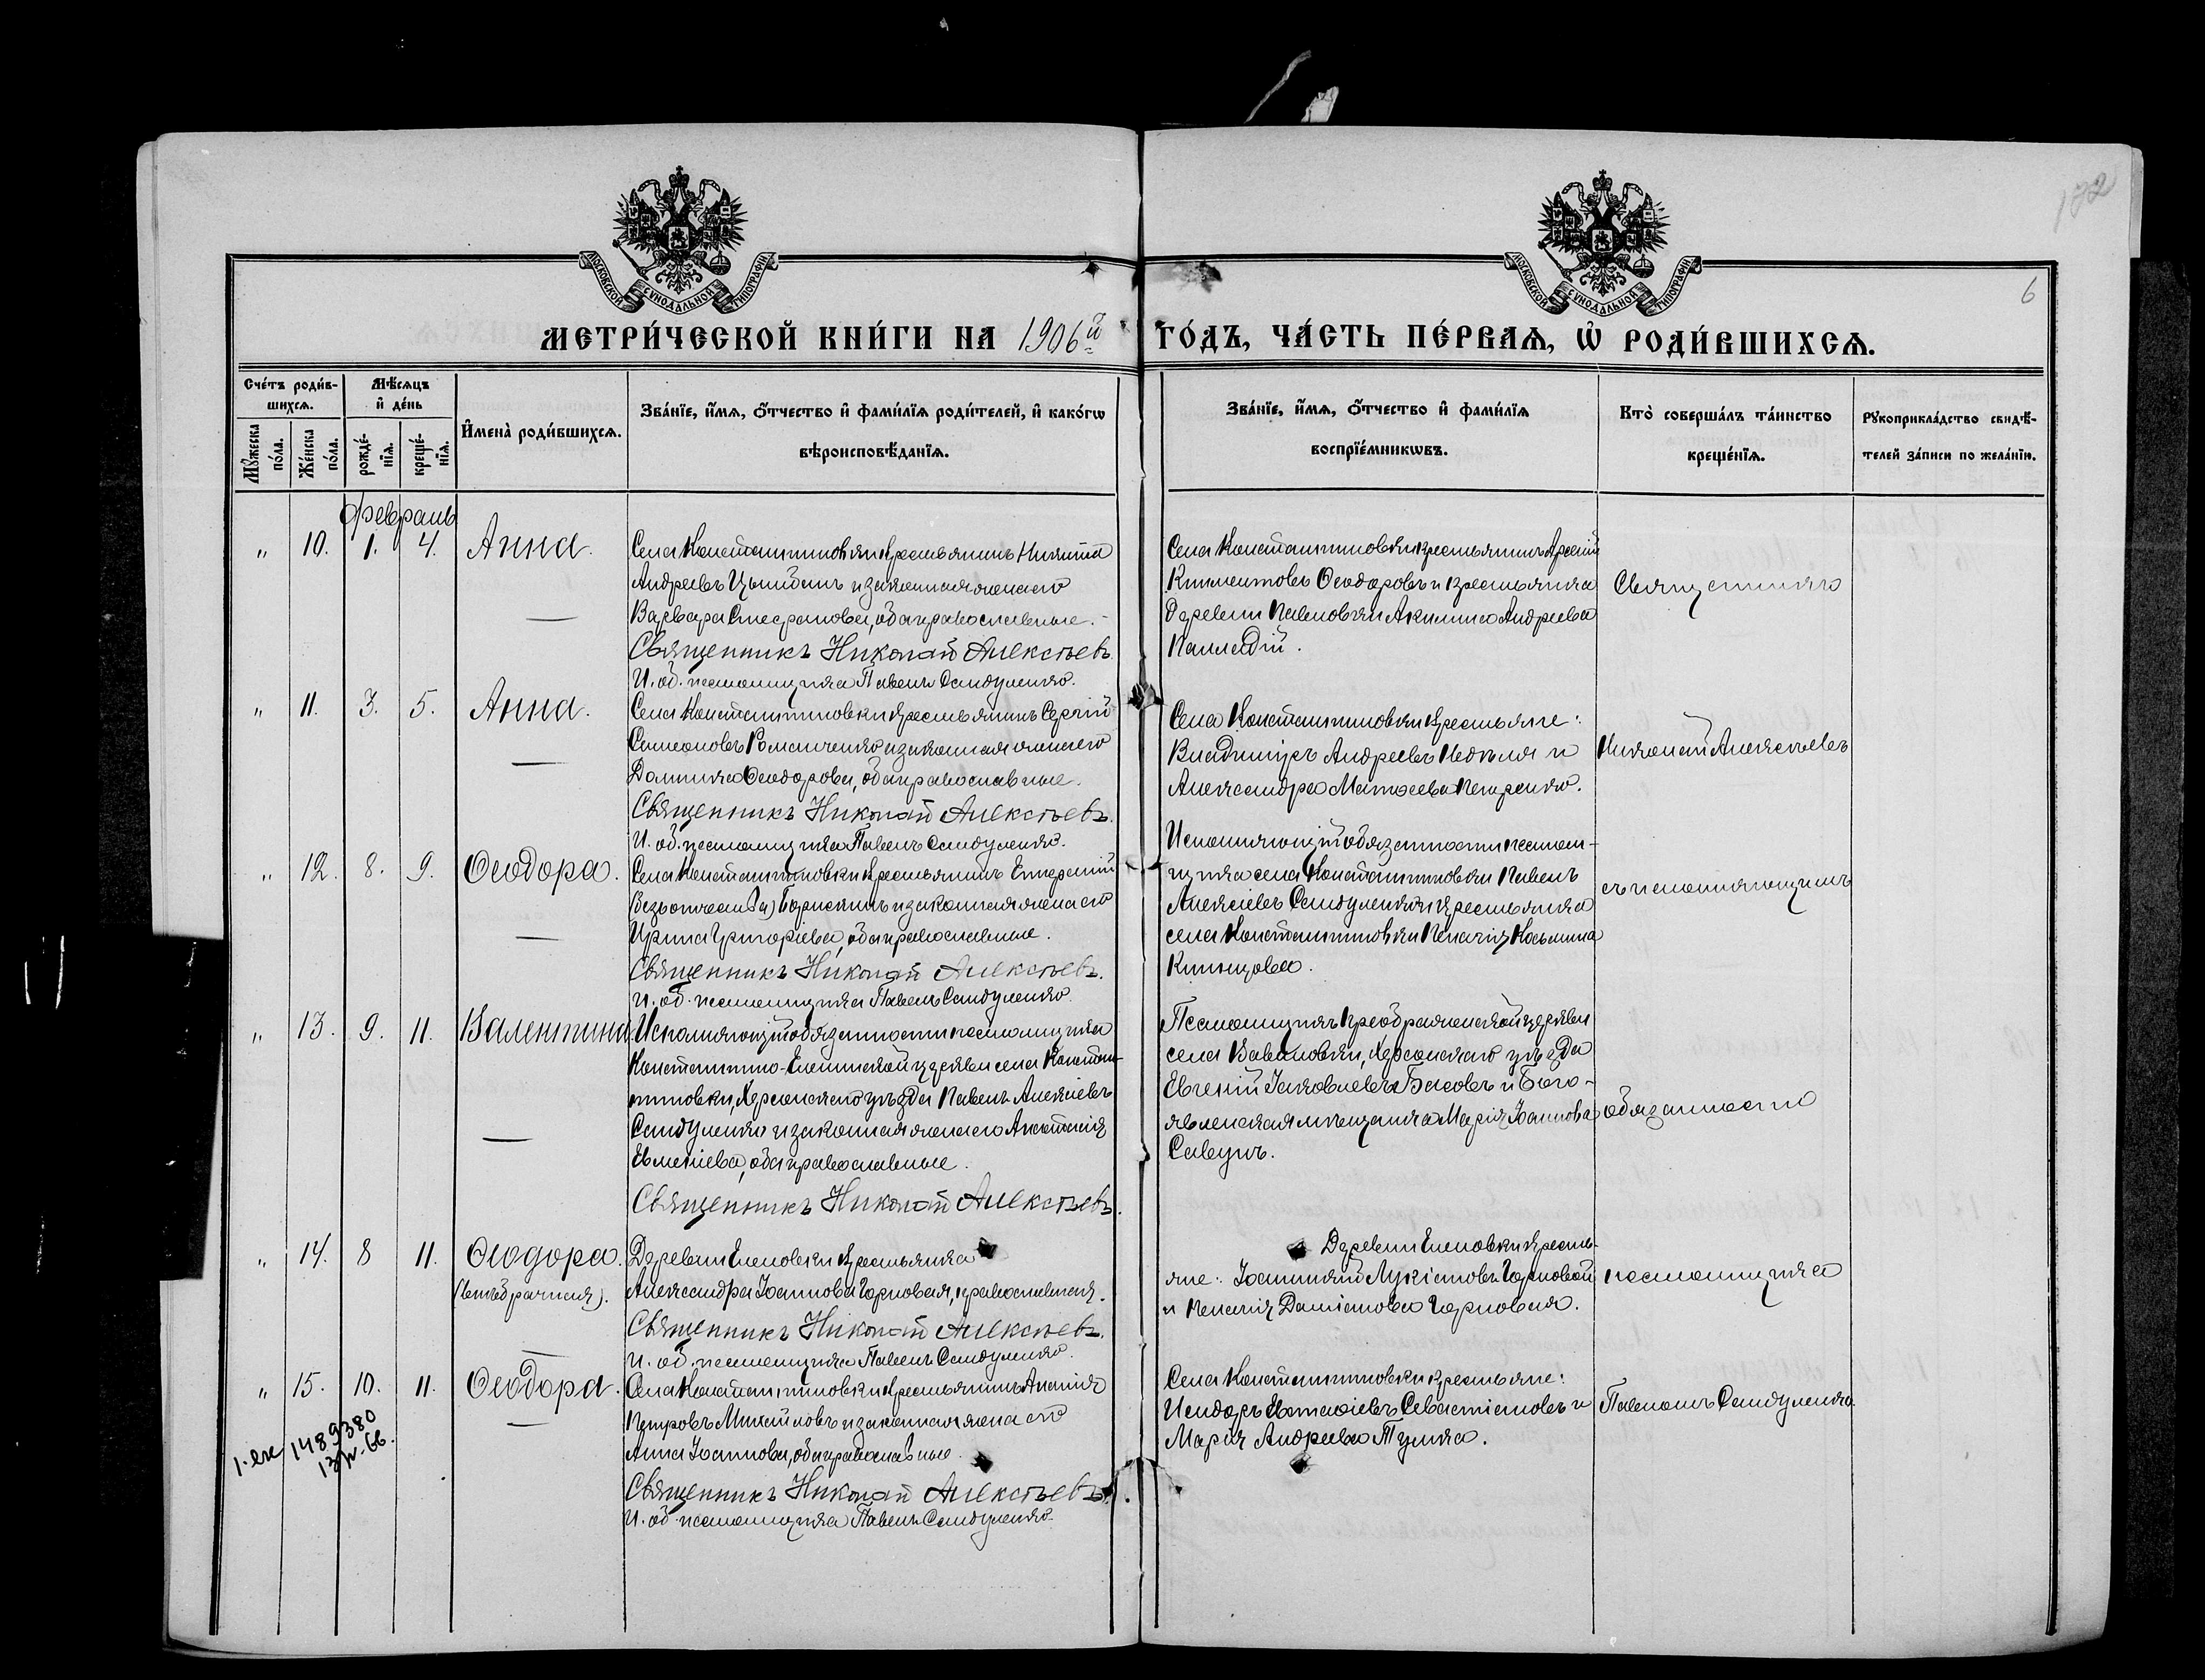 172
6
МОСКОВСКОЙ СУНОДАЛЬНОЙ ТИПОГРАФІИ
МОСКОВСКОЙ СУНОДАЛЬНОЙ ТИПОГРАФІИ
МЕТРИ́ЧЕСКОЙ КНИ́ГИ НА 1906й ГО́ДЪ, ЧА́СТЬ ПЕ́РВАѦ, Ѡ҆ РОДИ́ВШИХСѦ.
Сче́тъ роди́в-
шихсѧ.
Мꙋ́жеска по́ла.
Же́нска по́ла.
Мѣ́сѧцъ
и҆ де́нь
рожде́-
нїѧ.
креще́-
нїѧ.
И҆мена̀ роди́вшихсѧ.
Зва́нїе, и҆́мѧ, ѻ҆́тчество и҆ фами́лїѧ роди́телей, и҆ како́гѡ
вѣроисповѣ́данїѧ.
Зва́нїе, и҆́мѧ, ѻ҆́тчество и҆ фами́лїѧ
воспрїе́мникѡвъ.
Кто̀ соверша́лъ та́инство
креще́нїѧ.
Рꙋкоприкла́дство свидѣ́-
телей за́писи по жела́нїю.
Февраль
" 10. 1. 4. Анна.
Села Константиновки крестьянинъ Никита
Андреевъ Цымбалъ и законная жена его
Варвара Стефанова, оба православные.
Священникъ Николай Алексѣевъ.
И. об. псаломщика Павелъ Сандуленко.
Села Константиновки крестьянинъ Арсеній
Климентовъ Ѳеодоровъ и крестьянка
деревни Павловки Акилина Андреева
Палладій.
Священникъ
" 11. 3. 5. Анна.
Села Константиновки крестьянинъ Сергій
Симеоновъ Романченко и законная жена его
Домника Ѳеодорова, оба православные.
Священникъ Николай Алексѣевъ.
И. об. псаломщика Павелъ Сандуленко.
Села Константиновки крестьяне:
Владиміръ Андреевъ и
Александра Матѳеева Петренко.
Николай Алексѣевъ
" 12. 8. 9. Ѳеодора.
Села Константиновки крестьянинъ
(безъ отчества) и законная жена его
Ирина Григоріева, оба православные.
Священникъ Николай Алексѣевъ.
И. об. псаломщика Павелъ Сандуленко.
Исполняющій обязанности псалом-
щика села Константиновки Павелъ
Алексіевъ Сандуленко и крестьянка
села Константиновки Пелагія Косьмина
Климцова.
съ исполняющимъ
" 13. 9. 11. Валентина.
Исполняющій обязанности псаломщика
Константино-Еленинской церкви села Констан-
тиновки, Херсонскаго уѣзда Павелъ Алексіевъ
Сандуленко и законная жена его Анастасія
Евменіева, оба православные.
Священникъ Николай Алексѣевъ.
Псаломщикъ Преображенской церкви
села Вавиловки, Херсонскаго уѣзда
Евгеній Іаковлевъ Басовъ и Бого-
явленская мѣщанка Марія Іоаннова
Савунъ.
обязанности
" 14. 8 11. Ѳеодора.
(внѣбрачная).
Деревни Еленовки крестьянка
Александра Іоаннова Чорновая, православная.
Священникъ Николай Алексѣевъ.
И. об. псаломщика Павелъ Сандуленко.
Деревни Еленовки кресть-
яне: Іоанникій Лукіановъ Чорновой
и Пелагія Даміанова Чорновая.
псаломщика
" 15. 10. 11. Ѳеодора.
Села Константиновки крестьянинъ Ананія
Петровъ Михайловъ и законная жена его
Анна Іоаннова, оба православные.
Священникъ Николай Алексѣевъ.
И. об. псаломщика Павелъ Сандуленко.
Села Константиновки крестьяне:
Исидоръ Евстаѳіевъ Севастіановъ и
Марія Андреева Тумко.
Павломъ Сандуленко.
1489380